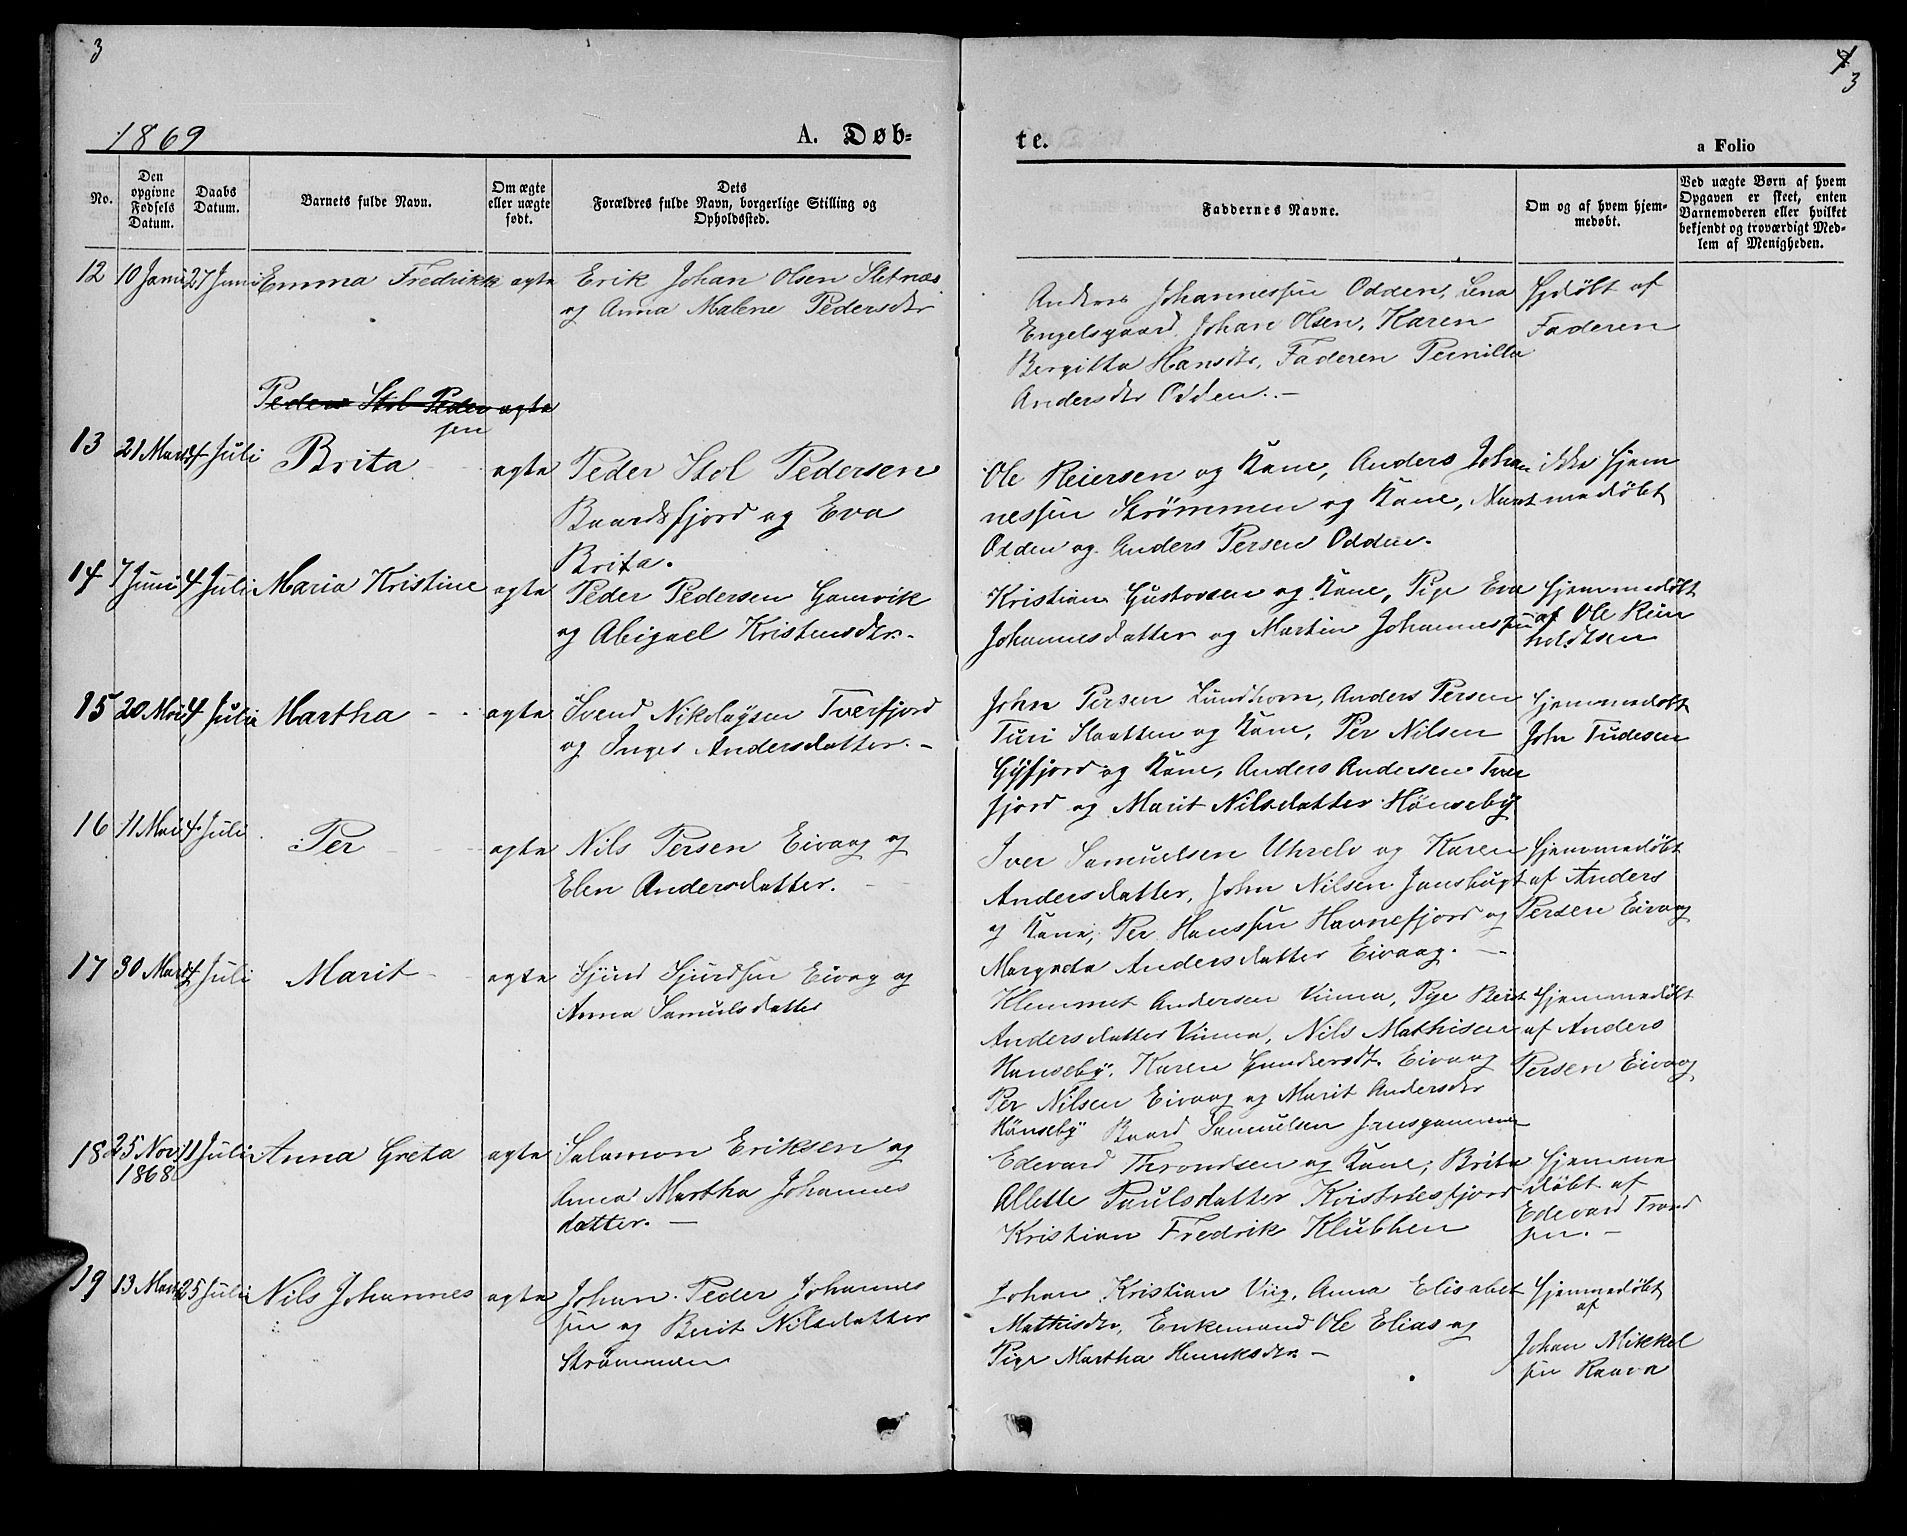 3
1
3
1869
A. Døb-
te.
a Folio
No.
Den opgivne Fødsels Datum.
Daabs Datum.
Barnets fulde Navn.
Om ægte eller uægte født.
Dets
Forældres fulde Navn, borgerlige Stilling og
Opholdssted.
Faddernes Navne.
Om og af hvem hjem-
medøbt.
Ved uægte Børn af hvem
Opgaven er skeet, enten
Barnemoderen eller hvilket
bekjendt og troværdigt Med-
lem af Menigheden.
12 10 Juni 27 Juni Emma Fredrikke ægte Erik Johan Olsen Sletnæs
og Anna Malene Pedersdtr
Anders Johannessen Odden, Lena
Engelsgaard, Johan Olsen, Karen
Bergitta Hansdtr, Faderen Pernilla
Andersdtr Odden. -
Hjdøbt af
Faderen
Peder Stol Peder ægte
sen
13 21 Marts 4 Juli Brita ægte Peder Stol Pedersen
Baardsfjord og Eva
Brita.
Ole Reiersen og Kone, Anders Johan
nessen Strømmen og Kone, Marit
Odden og Anders Persen Odden.
ikke hjem
medøbt
14 7 Juni 4 Juli Maria Kristine ægte Peder Pedersen Gamvik
og Abigael Kristensdtr. -
Kristian Gustavsen og Kone, Pige Eva
Johannesdatter og Martin Johannessen
Hjemmedøbt
af Ole Rein
holdtsen
15 20 Mai 4 Juli Martha - - ægte Svend Nikolaysen Tverfjord
og Inger Andersdatter. -
John Persen Lundhom, Anders Persen
Turi Slaatten og Kone, Per Nilsen
Gÿfjord og Kone, Anders Andersen Tver
fjord og Marit Nilsdatter Hönsebÿ
Hjemmedøbt
John Tudesen
16 11 Mai 4 Juli Per ægte Nils Persen Eivaag og
Elen Andersdatter. -
Iver Samuelsen Uhrelv og Karen
Andersdatter, John Nilsen Jansbugt
og Kone, Per Hanssen Havnefjord og
Margreta Andersdatter Eivaag. -
Hjemmedøbt
af Anders
Persen Eivaag
17 30 Marts 4 Juli Marit - ægte Sjurd Sjurdsen Eivag og
Anna Samulsdatter
Klemmet Andersen Vinna, Pige Berit
Andersdatter Vinna, Nils Mathisen
Hansebÿ, Karen Gundersdt. Eivaag
Per Nilsen Eivaag og Marit Andersdtr
Hönsebÿ Baard Samuelsen Jansgammen
Hjemmedøbt
af Anders
Persen Eivaag
18 25 Nov 11 Juli Anna Greta ægte Salamon Eriksen og
1868
Anna Martha Johannes
datter. -
Edevard Throndsen og Kone, Brita
Allette Paulsdatter Kvistnesfjord
Kristian Fredrik Klubben
Hjemme
døbt af
Edevard Trond
sen. -
19 13 Marts 25 Juli Nils Johannes ægte Johan Peder Johannes
sen og Berit Nilsdatter
Strømmen
Johan Kristian Viig, Anna Elisabet
Mathisdtr, Enkemand Ole Elias og
Pige Martha Henriksdtr. -
Hjemmedøbt
af
Johan Mikkel
sen Raava